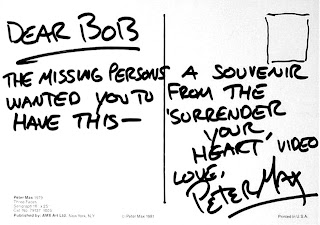 DEAR BOB
THE MISSING PERSONS
WANTED YOU TO
HAVE THIS—
A SOUVENIR
FROM THE
'SURRENDER
YOUR
HEART' VIDEO
LOVE,
PETER MAX
Peter Max 1979
Published by: AMS Art Ltd. New York, N.Y.
© Peter Max 1981
Printed in U.S.A.